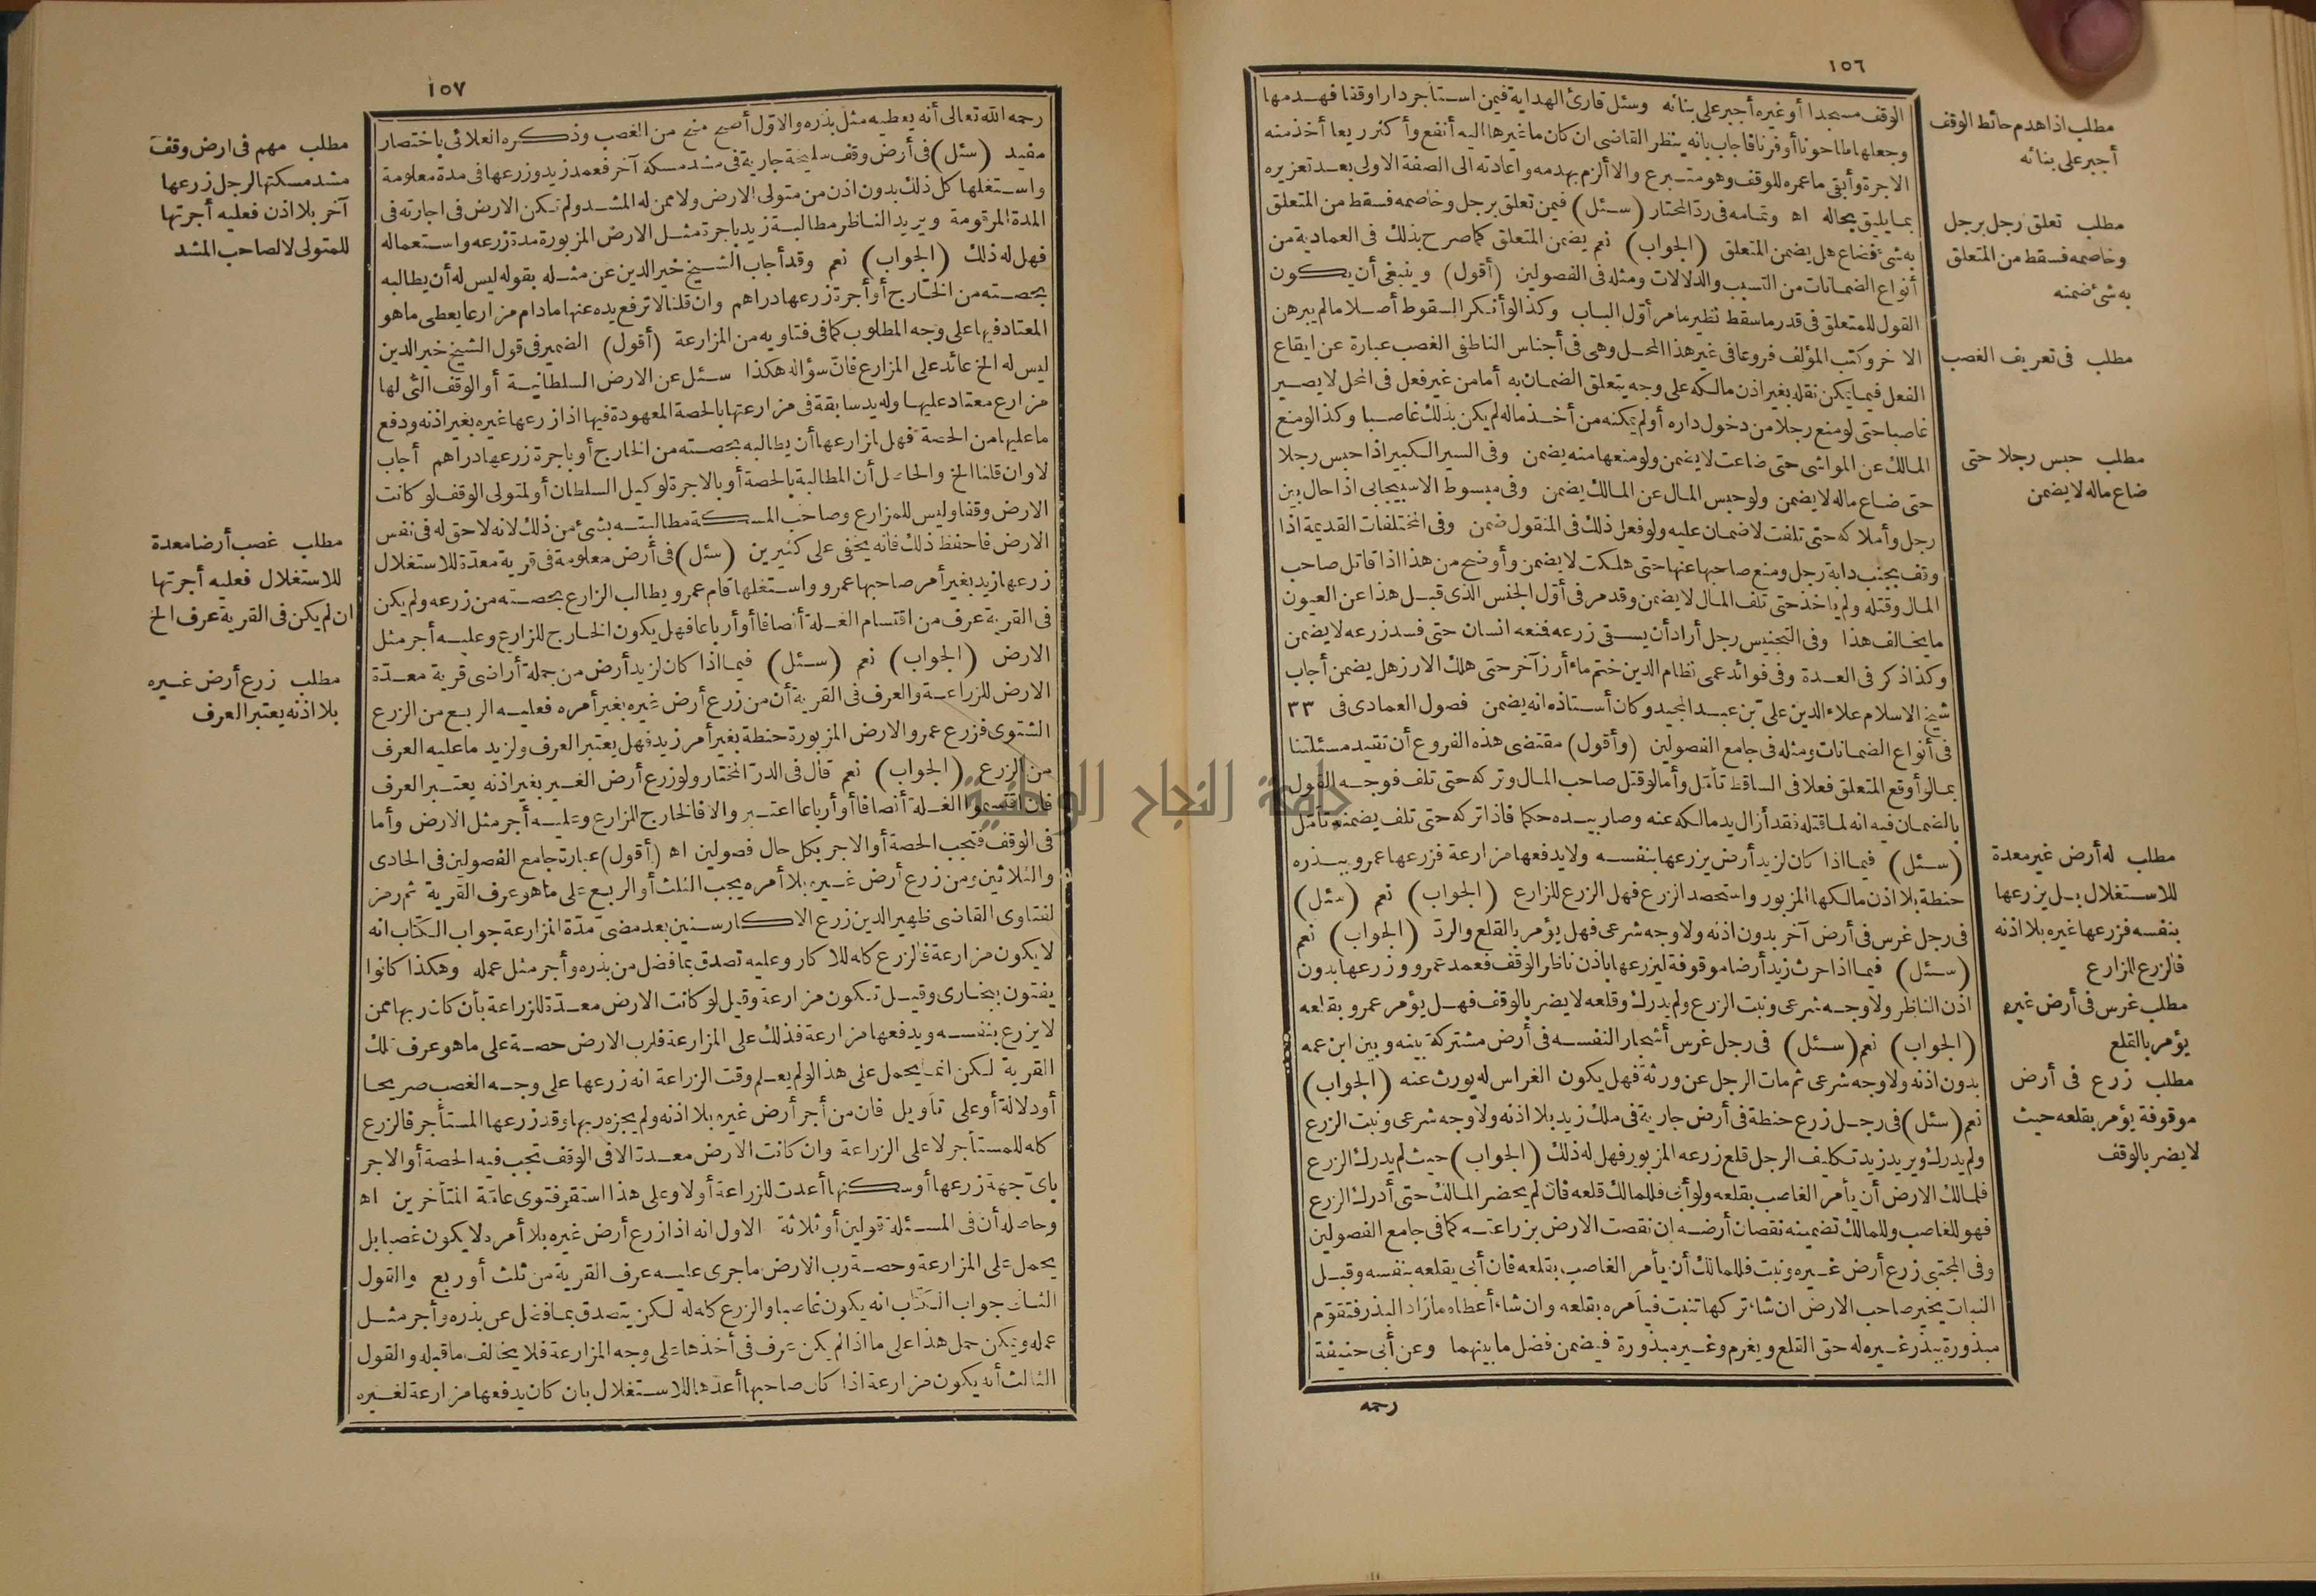 ١٥٦
الوقف مسجدا أو غيره أجبر على بنائه وسئل قارئ الهداية فيمن استأجر دارا وقفا فهدمها
وجعلها طاحونا أو فرنا فأجاب بانه ينظر القاضى ان كان ما غيرها اليه أنفع وأكثر ريعا أخذ منه
الاجرة وأبقى ما عمره للوقف وهو متبرع والا ألزم بهدمه واعادته الى الصفة الاولى بعد تعزيره
بما يليق بحاله اه وتمامه فى ردّ المحتار (سئل) فيمن تعلق برجل وخاصمه فسقط من المتعلق
به شئ فضاع هل يضمن المتعلق (الجواب) نعم يضمن المتعلق كما صرح بذلك فى العمادية من
أنواع الضمانات من التسبب والدلالات ومثله فى الفصولين (أقول) وينبغى أن يكون
القول للمتعلق فى قدر ما سقط نظير ما مر أوّل الباب وكذا لو أنكر السقوط أصلا ما لم يبرهن
الاخر وكتب المؤلف فروعا فى غير هذا المحل وهى فى أجناس الناطفى الغصب عبارة عن ايقاع
الفعل فيما يمكن نقله بغير اذن مالكه على وجه يتعلق الضمان به أما من غير فعل فى المحل لا يصير
غاصبا حتى لو منع رجلا من دخول داره أو لم يمكنه من أخذ ماله لم يكن بذلك غاصبا وكذا لو منع
المالك عن المواشى حتى ضاعت لا يضمن ولو منعها منه يضمن وفى السير الكبير اذا حبس رجلا
حتى ضاع ماله لا يضمن ولو حبس المال عن المالك يضمن وفى مبسوط الاسبيجابى اذا حال بين
رجل وأملاكه حتى تلفت لا ضمان عليه ولو فعل ذلك فى المنقول ضمن وفى المختلفات القديمة اذا
وقف بجنب دابة رجل ومنع صاحبها عنها حتى هلكت لا يضمن وأوضح من هذا اذا قاتل صاحب
المال وقتله ولم يأخذ حتى تلف المال لا يضمن وقد مر فى أوّل الجنس الذى قبل هذا عن العيون
ما يخالف هذا وفى التجنيس رجل أراد أن يسقى زرعه فمنعه انسان حتى فسد زرعه لا يضمن
وكذا ذكر فى العدة وفى فوائد عمى نظام الدين ختم ماء أرز آخر حتى هلك الارز هل يضمن أجاب
شيخ الاسلام علاء الدين علىّ بن عبد المجيد وكان أستاذه انه يضمن فصول العمادى فى ٣٣
فى أنواع الضمانات ومثله فى جامع الفصولين (وأقول) مقتضى هذه الفروع أن تقيد مسئلتنا
بما لو أوقع المتعلق فعلا فى الساقط تأمّل وأما لو قتل صاحب المال وتركه حتى تلف فوجه القول
بالضمان فيه انه لما قتله فقد أزال يد مالكه عنه وصار بيده حكما فاذا تركه حتى تلف يضمنه تأمّل
(سئل) فيما اذا كان لزيد أرض يزرعها بنفسه ولا يدفعها مزارعة فزرعها عمرو ببذره
حنطة بلا اذن مالكها المزبور واستحصد الزرع فهل الزرع للزارع (الجواب) نعم (سئل)
فى رجل غرس فى أرض آخر بدون اذنه ولا وجه شرعى فهل يؤمر بالقلع والردّ (الجواب) نعم
(سئل) فيما اذا حرث زيد أرضا موقوفة ليزرعها باذن ناظر الوقف فعمد عمرو وزرعها بدون
اذن الناظر ولا وجه شرعى ونبت الزرع ولم يدرك وقلعه لا يضر بالوقف فهل يؤمر عمرو بقلعه
(الجواب) نعم (سئل) فى رجل غرس أشجارا لنفسه فى أرض مشتركة بينه وبين ابن عمه
بدون اذنه ولا وجه شرعى ثم مات الرجل عن ورثة فهل يكون الغراس له يورث عنه (الجواب)
نعم (سئل) فى رجل زرع حنطة فى أرض جارية فى ملك زيد بلا اذنه ولا وجه شرعى ونبت الزرع
ولم يدرك ويريد زيد تكليف الرجل قلع زرعه المزبور فهل له ذلك (الجواب) حيث لم يدرك الزرع
فلمالك الارض أن يأمر الغاصب بقلعه ولو أبى فللمالك قلعه فان لم يحضر المالك حتى أدرك الزرع
فهو للغاصب وللمالك تضمينه نقصان أرضه ان نقصت الارض بزراعته كما فى جامع الفصولين
وفى المجتبى زرع أرض غيره ونبت فللمالك أن يأمر الغاصب بقلعه فان أبى يقلعه بنفسه وقبل
النبات يخير صاحب الارض ان شاء تركها تنبت فيأمره بقلعه وان شاء أعطاه ما زاد البذر فتقوّم
مبذورة ببذر غيره له حق القلع ويغرم وغير مبذورة فيضمن فضل ما بينهما وعن أبى حنيفة
رحمه
مطلب اذا هدم حائط الوقف
أجبر على بنائه
مطلب تعلق رجل برجل
وخاصمه فسقط من المتعلق
به شئ ضمنه
مطلب فى تعريف الغصب
مطلب حبس رجلا حتى
ضاع ماله لا يضمن
مطلب له أرض غير معدة
للاستغلال بل يزرعها
بنفسه فزرعها غيره بلا اذنه
فالزرع للزارع
مطلب غرس فى أرض غيره
يؤمر بالقلع
مطلب زرع فى أرض
موقوفة يؤمر بقلعه حيث
لا يضر بالوقف
١٥٧
رحمه الله تعالى أنه يعطيه مثل بذره والاوّل أصح منح من الغصب وذكره العلائى باختصار
مفيد (سئل) فى أرض وقف سليخة جارية فى مشد مسكة آخر فعمد زيد وزرعها فى مدة معلومة
واستغلها كل ذلك بدون اذن من متولى الارض ولا ممن له المشد ولم تكن الارض فى اجارته فى
المدة المرقومة ويريد الناظر مطالبة زيد باجرة مثل الارض المزبورة مدة زرعه واستعماله
فهل له ذلك (الجواب) نعم وقد أجاب الشيخ خير الدين عن مثله بقوله ليس له أن يطالبه
بحصته من الخارج أو أجرة زرعها دراهم وان قلنا لا ترفع يده عنها مادام مزارعا يعطى ما هو
المعتاد فيها على وجه المطلوب كما فى فتاويه من المزارعة (أقول) الضمير فى قول الشيخ خير الدين
ليس له الخ عائد على المزارع فانّ سؤاله هكذا سئل عن الارض السلطانية أو الوقف التى لها
مزارع معتاد عليها وله يد سابقة فى مزارعتها بالحصة المعهودة فيها اذا زرعها غيره بغير اذنه ودفع
ما عليها من الحصة فهل لمزارعها أن يطالبه بحصته من الخارج أو باجرة زرعها دراهم أجاب
لا وان قلنا الخ والحاصل أن المطالبة بالحصة أو بالاجرة لوكيل السلطان أو لمتولى الوقف لو كانت
الارض وقفا وليس للمزارع وصاحب المسكة مطالبته بشئ من ذلك لانه لا حق له فى نفس
الارض فاحفظ ذلك فانه يخفى على كثيرين (سئل) فى أرض معلومة فى قرية معدّة للاستغلال
زرعها زيد بغير أمر صاحبها عمرو واستغلها قام عمرو يطالب الزارع بحصته من زرعه ولم يكن
فى القرية عرف من اقتسام الغلة أنصافا أو أرباعا فهل يكون الخارج للزارع وعليه أجر مثل
الارض (الجواب) نعم (سئل) فيما اذا كان لزيد أرض من جملة أراضى قرية معدّة
الارض للزراعة والعرف فى القرية أن من زرع أرض غيره بغير أمره فعليه الربع من الزرع
الشتوى فزرع عمرو الارض المزبورة حنطة بغير أمر زيد فهل يعتبر العرف ولزيد ما عليه العرف
من الزرع (الجواب) نعم قال فى الدرّ المختار ولو زرع أرض الغير بغير اذنه يعتبر العرف
فان اقتسموا الغلة أنصافا أو أرباعا اعتبر والا فالخارج للزارع وعليه أجر مثل الارض وأما
فى الوقف فتجب الحصة أو الاجر بكل حال فصولين اه (أقول) عبارة جامع الفصولين فى الحادى
والثلاثين ومن زرع أرض غيره بلا أمره يجب الثلث أو الربع على ما هو عرف القرية ثم رمز
لفتاوى القاضى ظهير الدين زرع الاكار سنين بعد مضى مدّة المزارعة جواب الكتاب انه
لا يكون مزارعة فالزرع كله للاكار وعليه تصدق بما فضل من بذره وأجر مثل عمله وهكذا كانوا
يفتون ببخارى وقيل تكون مزارعة وقيل لو كانت الارض معدّة للزراعة بأن كان ربها ممن
لا يزرع بنفسه ويدفعها مزارعة فذلك على المزارعة فلرب الارض حصة على ما هو عرف تلك
القرية لكن انما يحمل على هذا لو لم يعلم وقت الزراعة انه زرعها على وجه الغصب صريحا
أو دلالة أو على تأويل فان من أجر أرض غيره بلا اذنه ولم يجزه ربها وقد زرعها المستأجر فالزرع
كله للمستأجر لا على الزراعة وان كانت الارض معدة الا فى الوقف تجب فيه الحصة أو الاجر
باىّ جهة زرعها أو سكنها أعدت للزراعة أولا وعلى هذا استقر فتوى عامّة المتأخرين اه
وحاصله أن فى المسئلة قولين أو ثلاثة الاول انه اذا زرع أرض غيره بلا أمره لا يكون غصبا بل
يحمل على المزارعة وحصة رب الارض ما جرى عليه عرف القرية من ثلث أو ربع والقول
الثانى جواب الكتاب انه يكون غاصبا والزرع كله له لكن يتصدق بما فضل عن بذره وأجر مثل
عمله ويمكن حمل هذا على ما اذا لم يكن عرف فى أخذها على وجه المزارعة فلا يخالف ما قبله والقول
الثالث أنه يكون مزارعة اذا كان صاحبها أعدّها للاستغلال بان كان يدفعها مزارعة لغيره
مطلب مهم فى ارض وقف
مشد مسكتها لرجل زرعها
آخر بلا اذن فعليه أجرتها
للمتولى لا لصاحب المشد
مطلب غصب أرضا معدة
للاستغلال فعليه أجرتها
ان لم يكن فى القرية عرف الخ
مطلب زرع أرض غيره
بلا اذنه يعتبر العرف
جامعة النجاح الوطنية